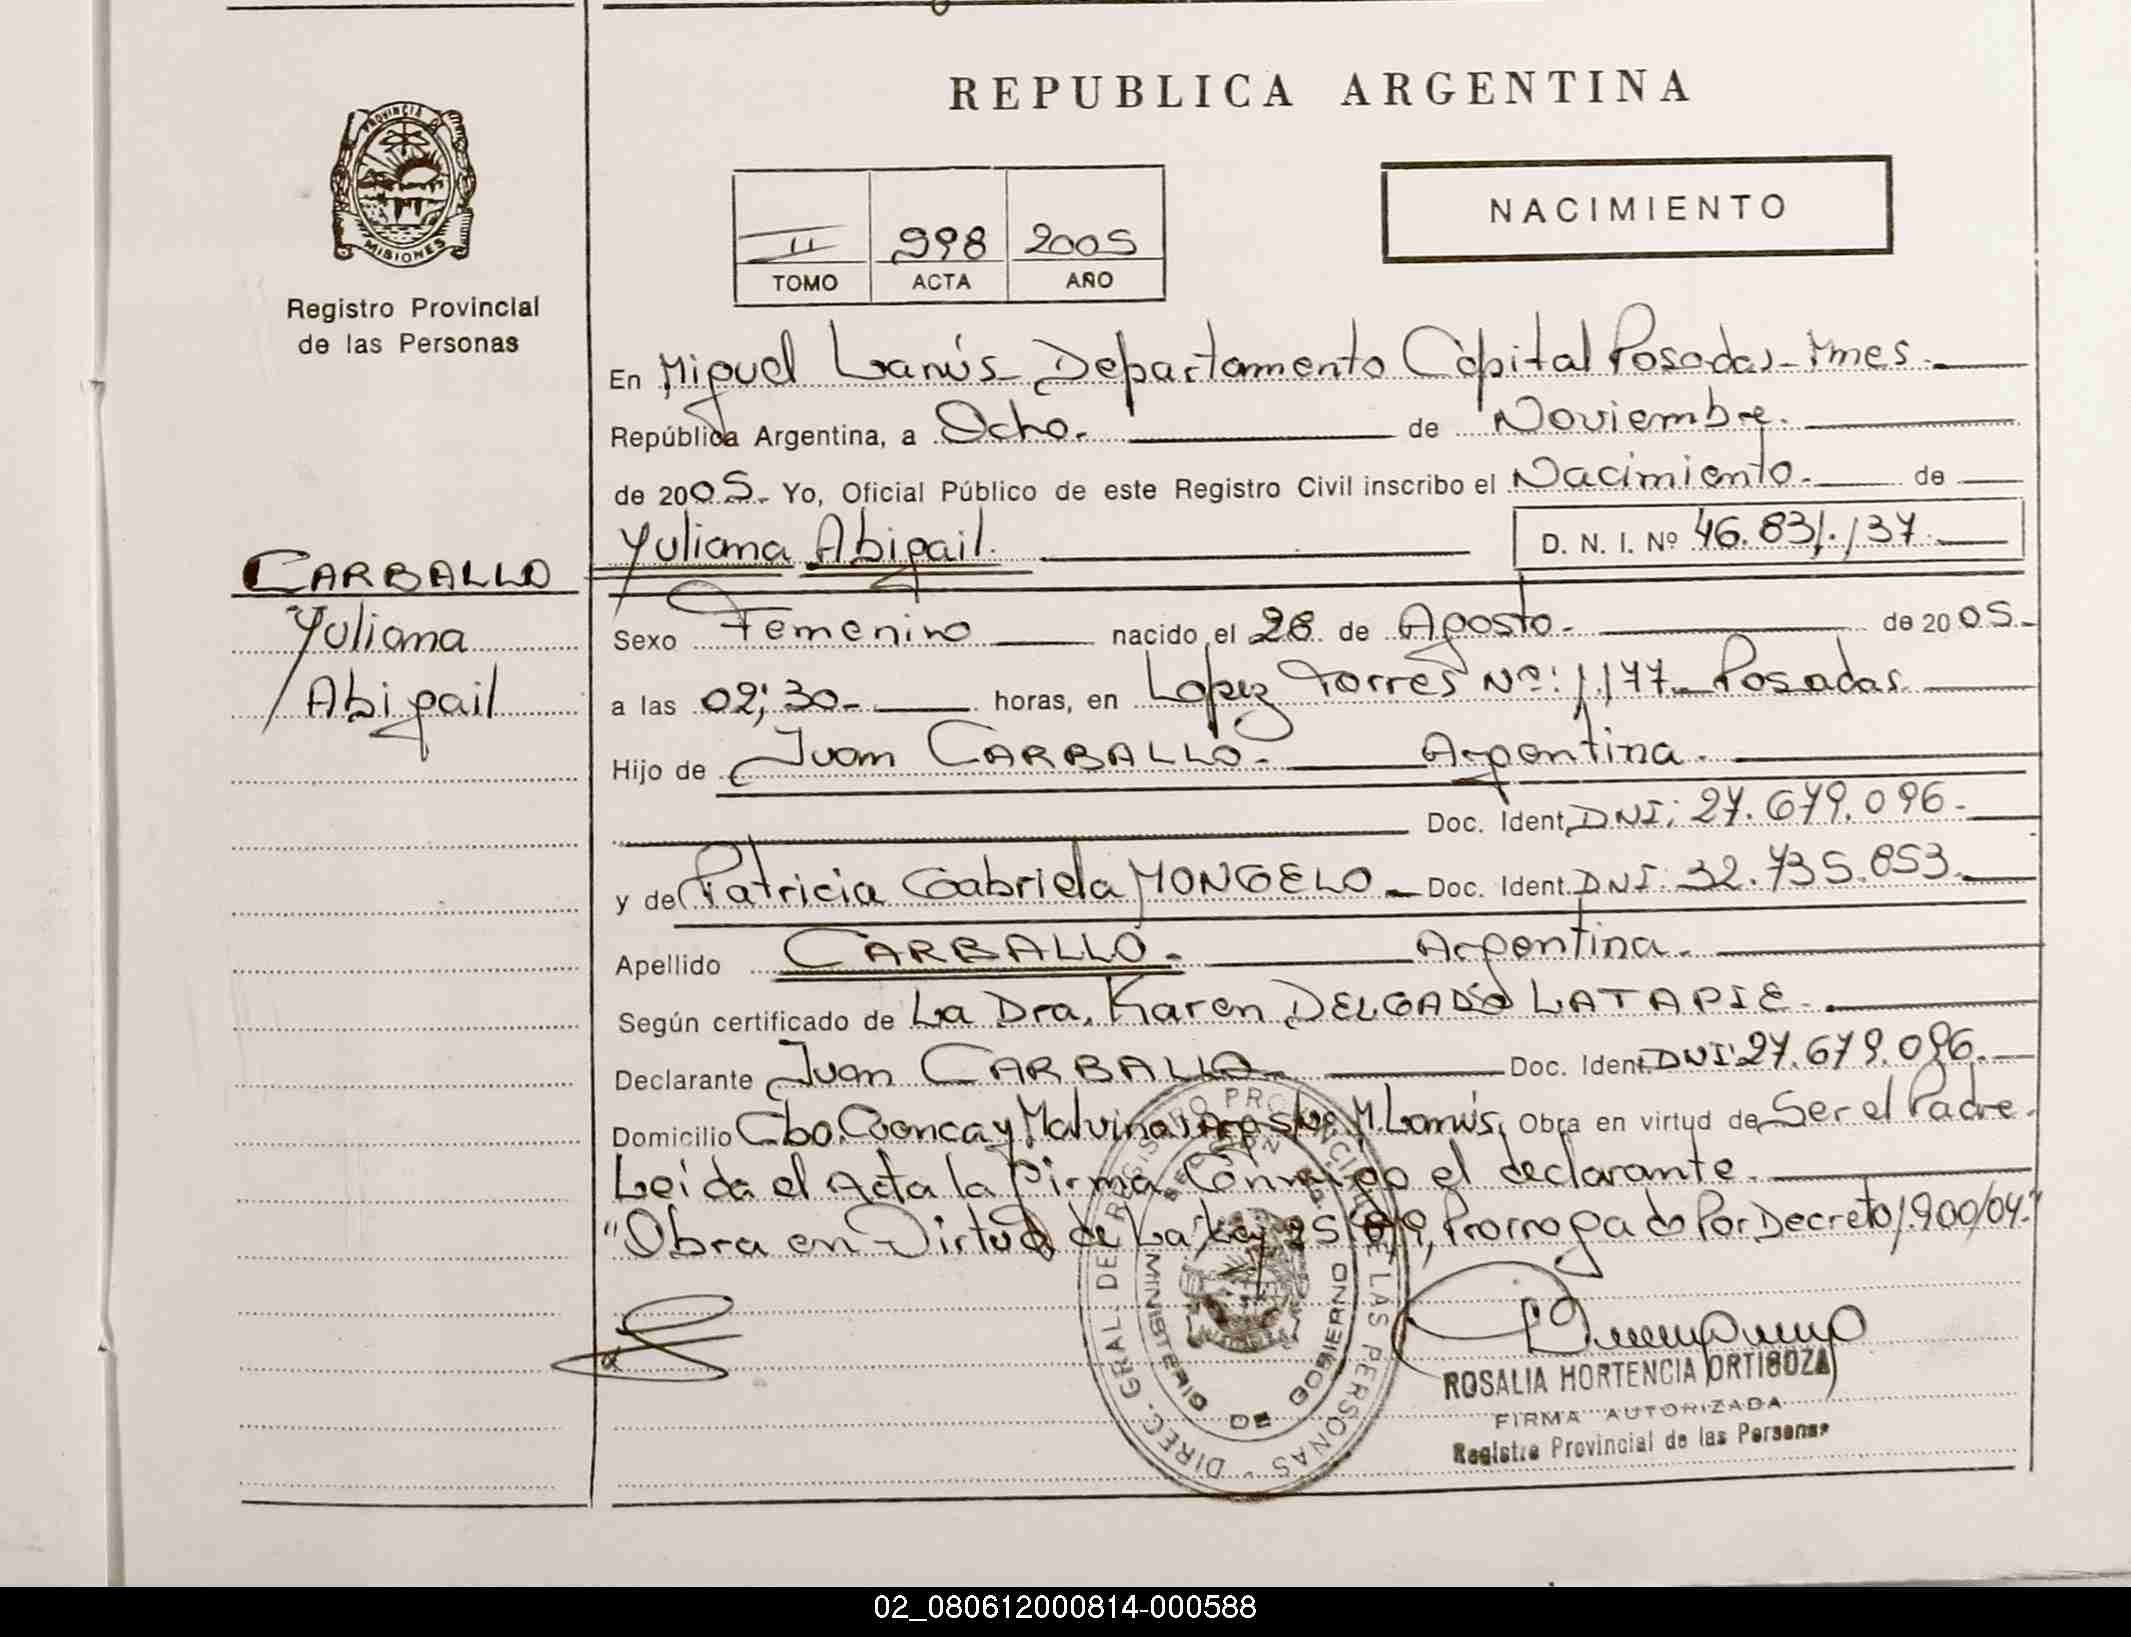 REPUBLICA ARGENTINA
PROVINCIA DE
MISIONES
Registro Provincial
de las Personas
II 998 2005
TOMO ACTA AÑO
NACIMIENTO
En Miguel Lanús Departamento Capital Posadas Mnes.
República Argentina, a Ocho. de Noviembre.
de 2005. Yo, Oficial Público de este Registro Civil inscribo el Nacimiento. de
Yuliana Abigail. D. N. I. Nº 46.831.137
CARBALLO
Yuliana
Abigail
Sexo Femenino nacido el 28 de Agosto de 2005.
a las 02;30 horas, en Lopez Torres Nº: 1.177 Posadas.
Hijo de Juan CARBALLO. Argentina.
Doc. Ident. DNI: 27.679.096.
y de Patricia Gabriela MONGELO Doc. Ident. DNI: 32.735.853.
Apellido CARBALLO. Argentina.
Según certificado de La Dra. Karen DELGADO LATAPIE.
Declarante Juan CARBALLO Doc. Ident. DNI: 27.679.096.
Domicilio Cbo. y Malvinas M. Lanús. Obra en virtud de Ser el Padre.
Leida el Acta la Firma Conmigo el declarante.
"Obra en Virtud de La Ley 25 Prorrogado Por Decreto 1.900/04"
DIREC. GRAL DE REGISTRO PROVINCIAL DE LAS PERSONAS
MINISTERIO DE GOBIERNO
ROSALIA HORTENCIA ORTIGOZA
FIRMA AUTORIZADA
Registro Provincial de las Personas
02_080612000814-000588